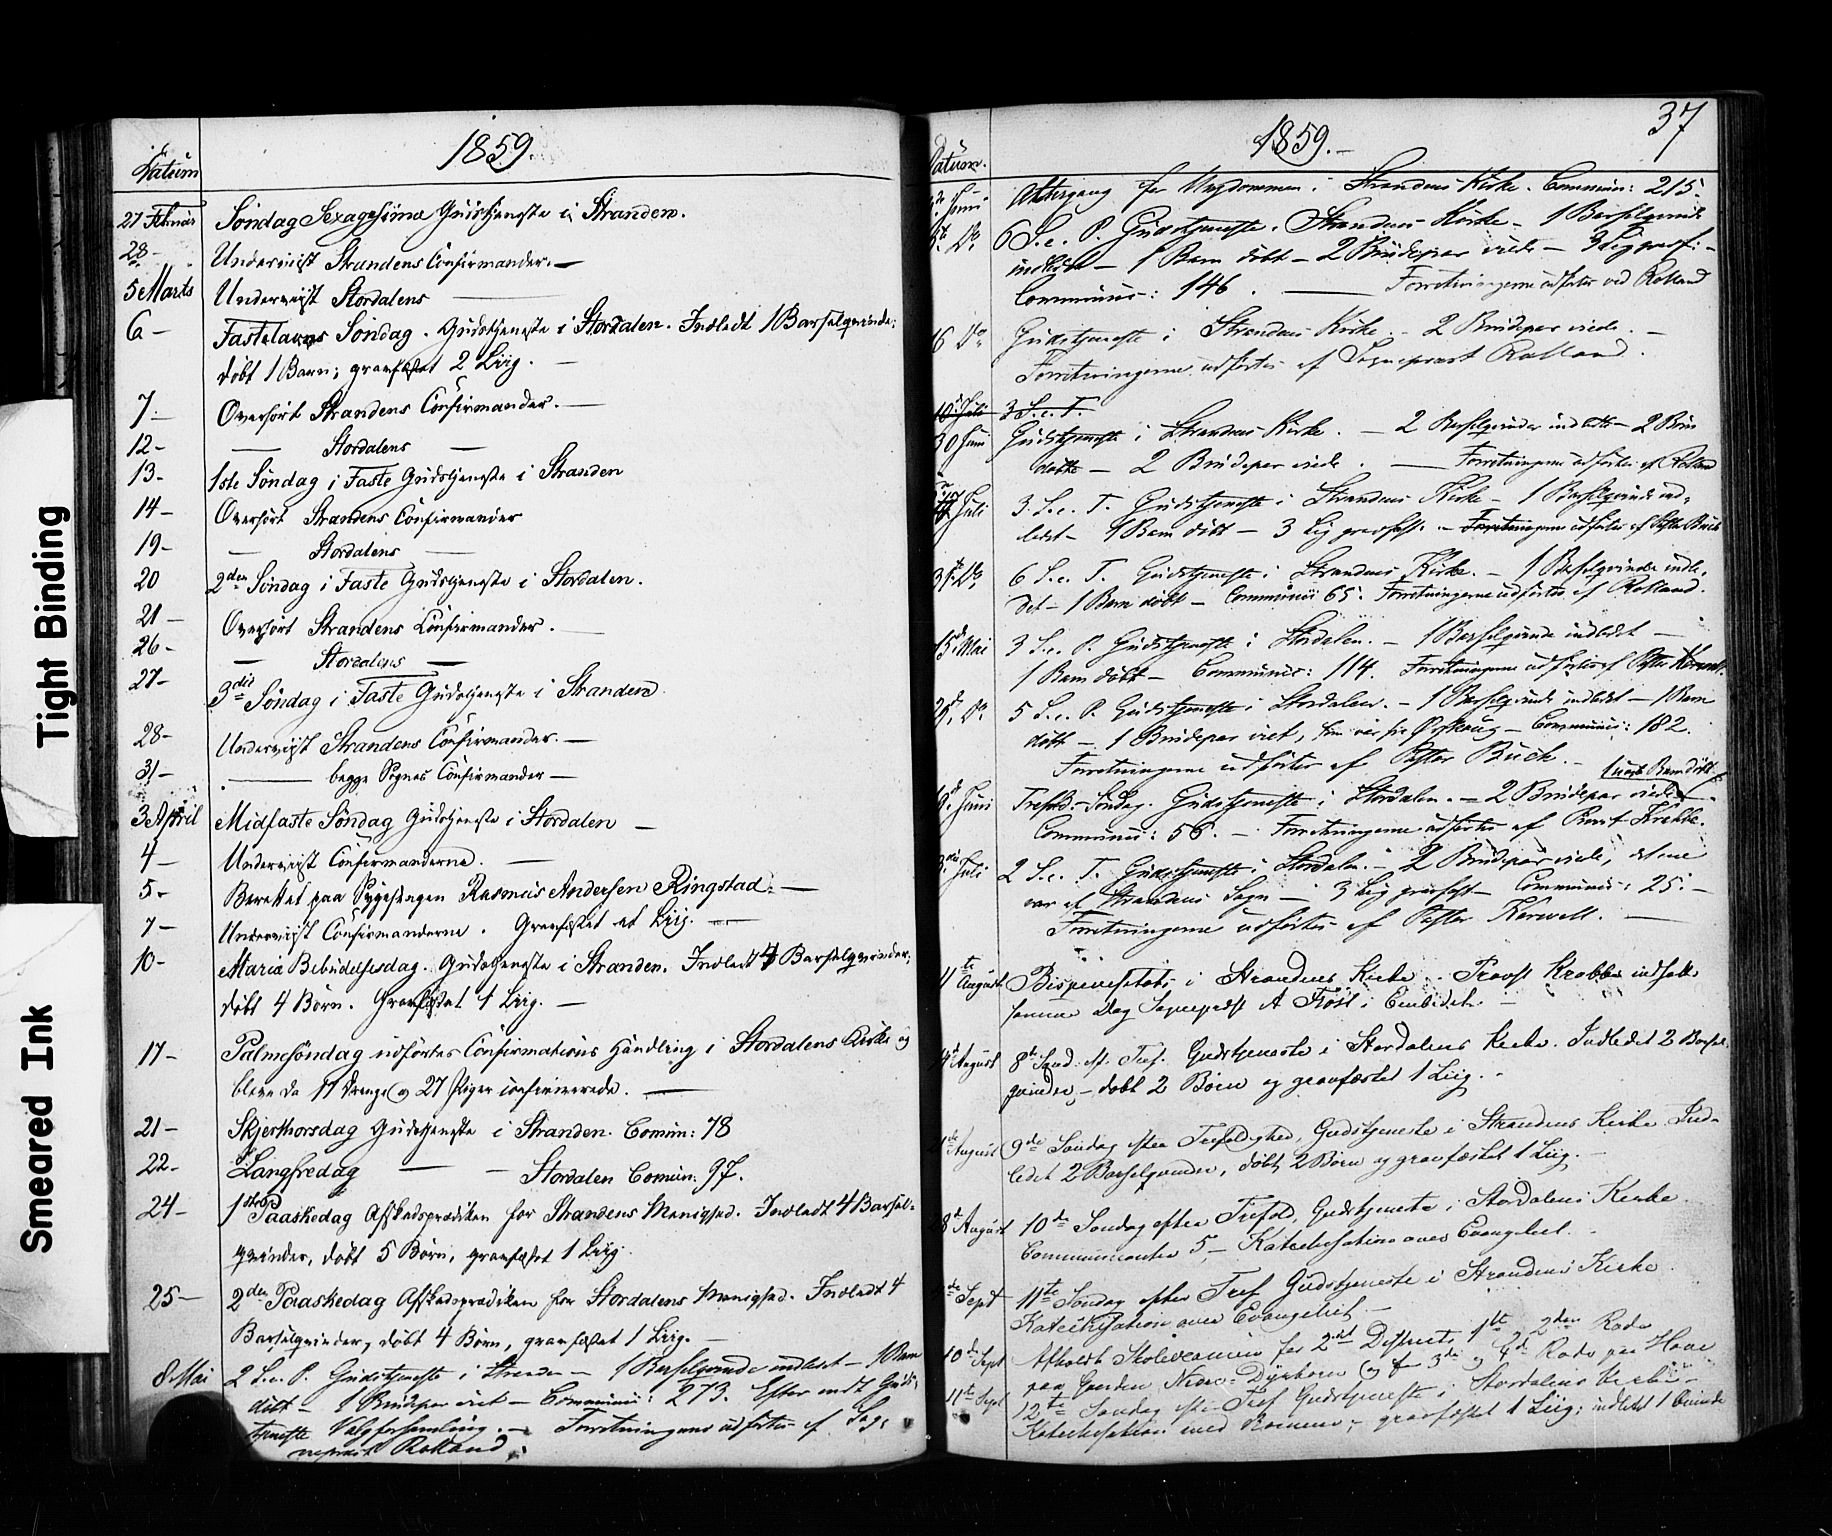 Tight Binding
Smeared Ink
1859.
Datum
27 Februar Søndag Sexagesima Gudstjeneste i Stranden.
28 - Underviist Strandens Confirmander. —
5 Marts Underviist Stordalens —
6 - Fastelavns Søndag. Gudstjeneste i Stordalen. Indledt 1 Barselqvinde;
døbt 1 Barn; gravfæstet 2 Liig. —
7. - Overhørt Strandens Confirmander. —
12 - — Stordalens —
13. - 1ste Søndag i Faste Gudstjeneste i Stranden
14 - Overhørt Strandens Confirmander
19 - — Stordalens —
20 2den Søndag i Faste Gudstjeneste i Stordalen.
21 - Overhørt Strandens Confirmander. —
26 - — Stordalens —
27 - 3die Søndag i Faste Gudstjeneste i Stranden.
28 - Underviist Strandens Confirmander. —
31 - — begge Sognes Confirmander —
3 April Midfaste Søndag Gudstjeneste i Stordalen —
4 - Underviist Confirmanderne. —
5 - Berettet paa Sygesengen Rasmus Andersen Ringstad. —
7 - Underviist Confirmanderne. Gravfæstet et Liig. —
10 - Mariæ Bebudelsesdag. Gudstjeneste i Stranden. Indledt 4 Barselqvinder;
døbt 4 Børn. Gravfæstet 1 Liig. —
17 - Palmesøndag udførtes Confirmations Handling i Stordalens Kirke og
bleve da 17 Drenge og 27 Piger confirmerede. —
21 - Skjerthorsdag Gudstjeneste i Stranden. Comun: 78
22 - Langfredag — — Stordalen Comun: 97.
24 - 1ste Paaskedag Afskedsprædiken for Strandens Menighed. Indledt 4 Barsel-
qvinder, døbt 5 Børn, gravfæstet 1 Liig.
25 - 2den Paaskedag Afskedsprædiken for Stordalens Menighed. Indledt 4
Barselqvinder, døbt 4 Børn, gravfæstet 1 Liig. —
8 Mai 2 S. e. P. Gudstjeneste i Stranden — 1 Barselqvinde indledt — 1 Barn
døbt — 1 Brudepar viet — Communic: 273. Efter endt Guds-
tjeneste Valgforsamling. — Forretningerne udførtes af Sog-
nepræst Rolland.
37
1859. —
Datum.
Juni Altergang for Ungdommen i Strandens Kirke. Communic: 215.
Do 6 S. e. P. Gudstjeneste i Strandens Kirke — 1 Barselqvinde
indledt — 1 Barn døbt — 2 Brudepar viede — 3 Lig gravf: —
Communic: 146. — Forretningerne udførtes ved Rolland
6 Do Gudstjeneste i Strandens Kirke. — 2 Brudepar viede. —
Forretningerne udførtes af Sognepræst Rolland.
10 Juli 3 S. e. T.
30 Juni Gudstjeneste i Strandens Kirke. — 2 Barselqvinder indledt — 2 Børn
døbte — 2 Brudepar viede. — Forretningerne udførtes af Rolland
Juli 3 S. e. T. Gudstjeneste i Strandens Kirke — 1 Barselqvinde ind-
ledet — 1 Barn døbt — 3 Lig gravfæst. — Forretningerne udførtes af Pastor Buch
31te Do 6 S. e. T. Gudstjeneste i Strandens Kirke. — 1 Barselqvinde indle-
det — 1 Barn døbt — Communic: 65. Forretningerne udførtes af Rolland.
15de Mai 3 S. e. P. Gudstjeneste i Stordalen. — 1 Barselqvinde indledet —
1 Barn døbt — Communic: 114. Forretningerne udførtes af Pastor
Do 5 S. e. P. Gudstjeneste i Stordalen. — 1 Barselqvinde indledet — 1 Barn
døbt — 1 Brudepar viet, som var fra Ørskoug — Communic: 182.
Forretningerne udførtes af Pastor Buch. — 1 Barn døbt
Juni Trefold: Søndag. Gudstjeneste i Stordalen. — 2 Brudepar viede
Communic: 56. — Forretningerne udførtes af Provst Krabbe.
3die Juli 2 S. e. T. Gudstjeneste i Stordalen. — 2 Brudepar viede, det ene
var af Strandens Sogn — 3 Lig gravfæst — Communic: 25. —
Forretningerne udførtes af Pastor —
August Bispevisitats i Strandens Kirke. Provst Krabbe indsatte
samme Dag Sognepræst i Embedet. —
August 8de Sønd. ef. Tref. Gudstjeneste i Stordalens Kirke. Indledet 2 Barsel-
qvinder, — døbt 2 Børn og gravfæstet 1 Liig. -
August 9de Søndag efter Trefoldighed, Gudstjeneste i Strandens Kirke Ind-
ledet 2 Barselqvinder, døbt 2 Børn og gravfæstet 1 Liig. —
August 10de Søndag efter Trefold, Gudstjeneste i Stordalens Kirke.
Communicanter 5, — Katechisation over Evangeliet.
Sept 11te Søndag efter Tref Gudstjeneste i Strandens Kirke.
Katechisation over Evangeliet —
10de Sept Afholdt Skoleexamen for 2det Distrikts 1ste og 2den Rode
paa Gaarden Nedre Dyrkorn og for 3die og 4de Rode paa
11te Sept 12te Søndag eft. Tref Gudstjeneste i Stordalens Kirke —
Katechisation med — gravfæstet 1 Liig; indledet 1 Qvinde